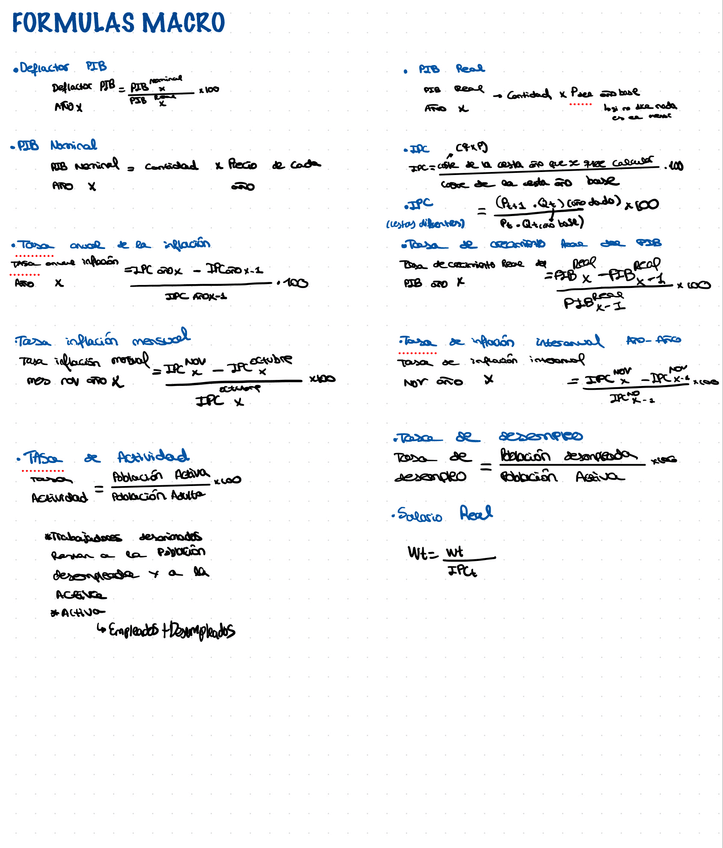 FORMULAS MACRO
• Deflactor PIB
Deflactor PIB = PIB Nominal x / PIB Real x x100
AÑO x
• PIB Real
PIB Real → Cantidad x Precio año base
Año x
si no dice nada
es el menor
• PIB Nominal
PIB Nominal = cantidad x Precio de cada
Año x año
• IPC (QxP)
IPC = coste de la cesta año que se quiere calcular / coste de la cesta año base . 100
• IPC = (Pt+1 . Qt) (año dado) / Pt . Qt (año base) x 100
(cestas diferentes)
• Tasa anual de la inflación
Tasa anual inflación = IPC año x - IPC año x-1 / IPC año x-1 . 100
Año x
• Tasa de crecimiento Real del PIB
Tasa de crecimiento Real del = PIB Real x - PIB Real x-1 / PIB Real x-1 x 100
PIB año x
• Tasa inflación mensual
Tasa inflación mensual = IPC NOV x - IPC octubre x / IPC octubre x x100
mes nov año x
• Tasa de inflación interanual Año-Año
Tasa de inflación interanual
Nov año x = IPC NOV x - IPC NOV x-1 / IPC NO x-1 x100
• TASA de Actividad
Tasa Actividad = Población Activa / Población Adulta x100
• Tasa de desempleo
Tasa de desempleo = Población desempleada / Población Activa x100
* Trabajadores desanimados
a la Población
desempleada y a la
Activa
* Activa
↳ Empleados + Desempleados
• Salario Real
Wt = wt / IPCt